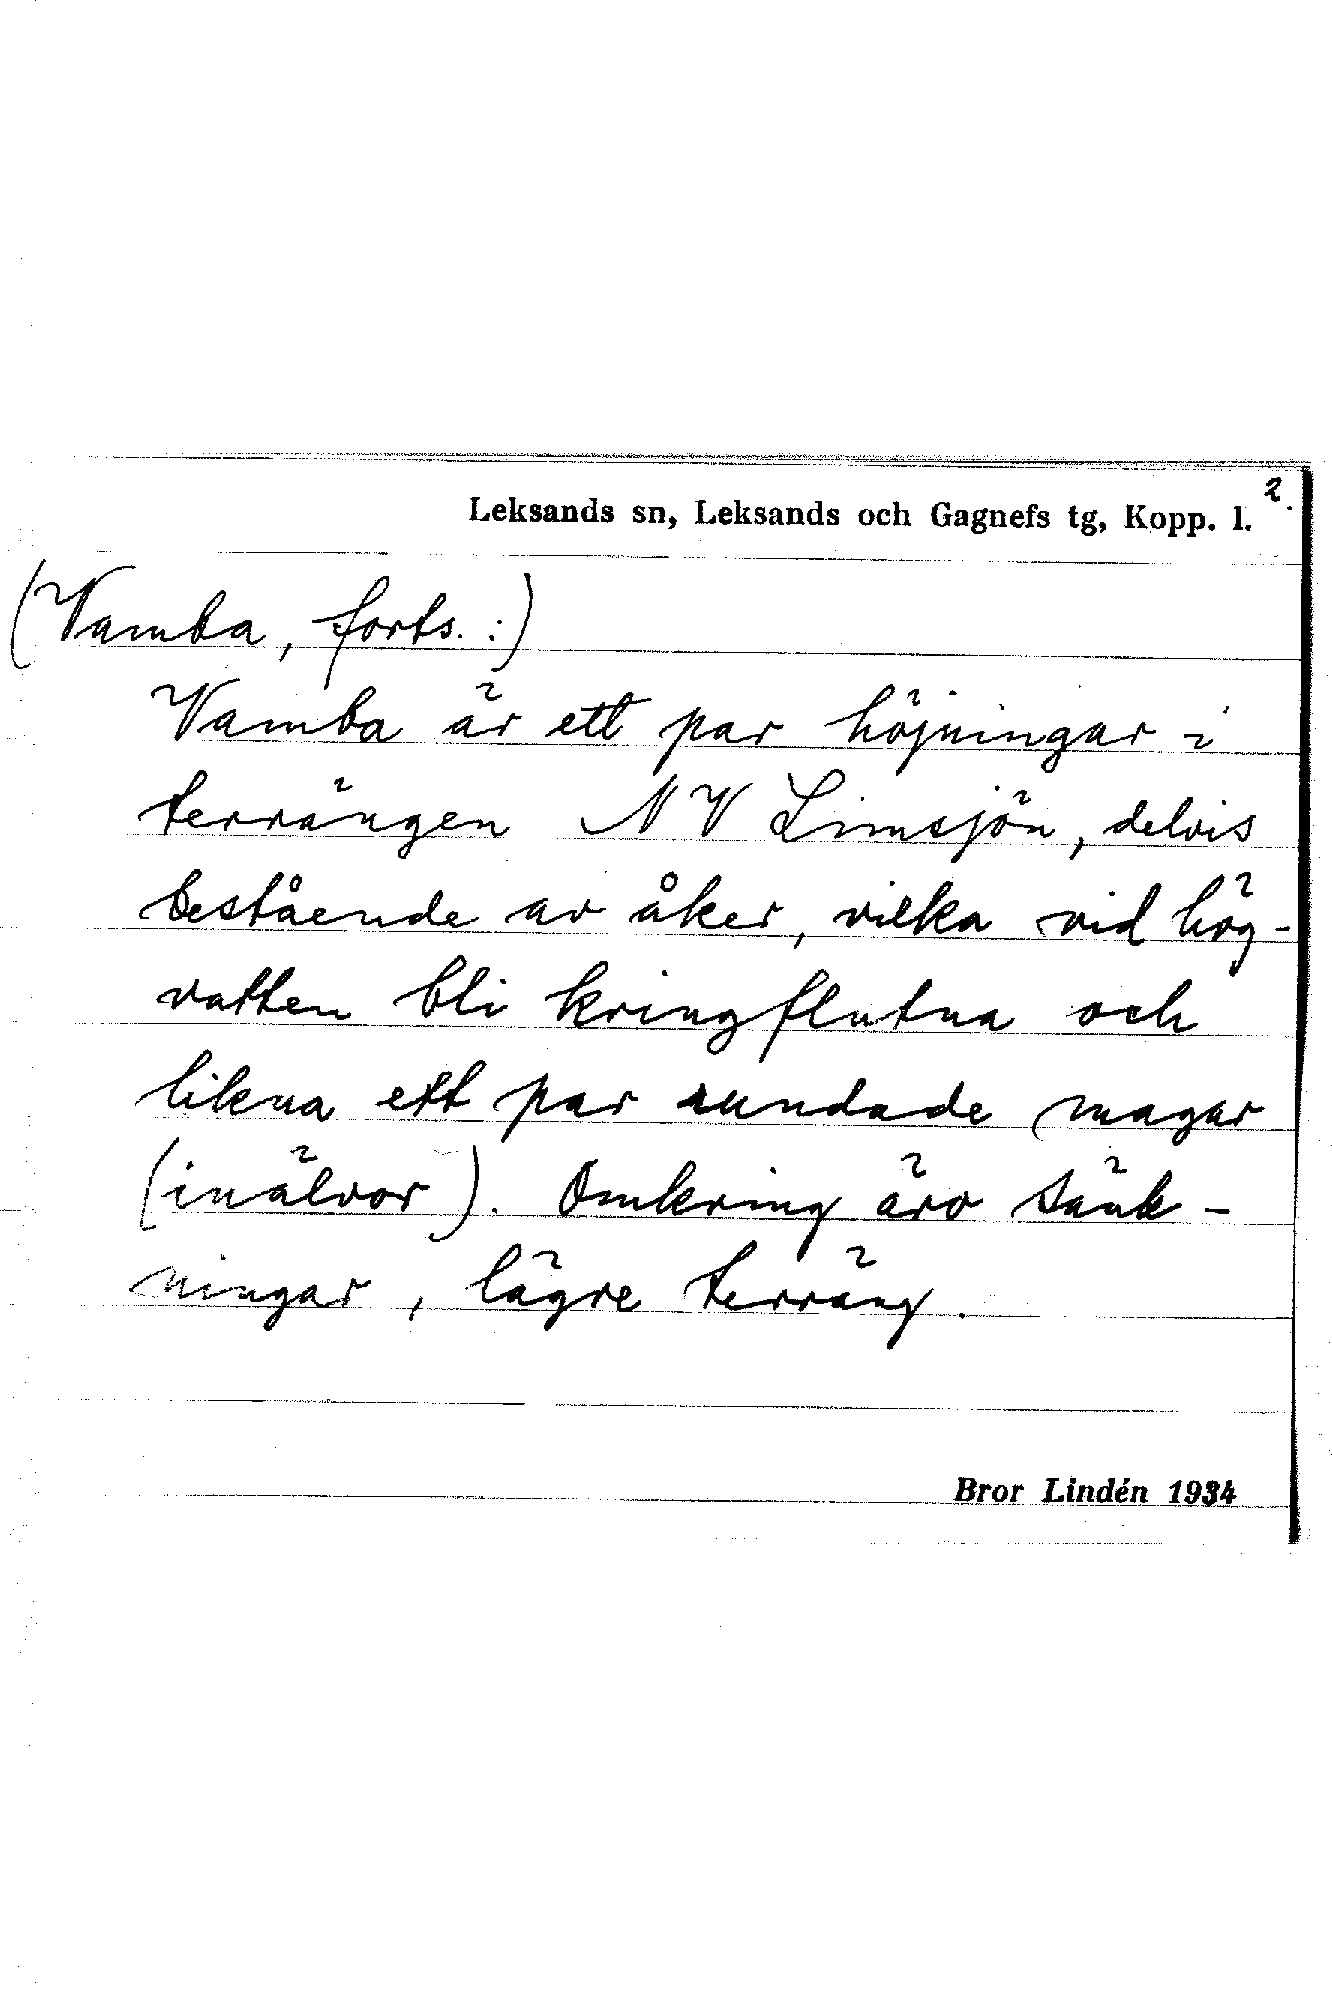 2.
Leksands sn, Leksands och Gagnefs tg, Kopp. l.
(Vamba, forts. :)
Vamba är ett par höjningar i
terrängen NV Limsjön, delvis
bestående av åker, vilka vid hög-
vatten bli kringflutna och
likna ett par rundade magar
(inälvor). Omkring äro sänk-
ningar, lägre terräng.
Bror Lindén 1934